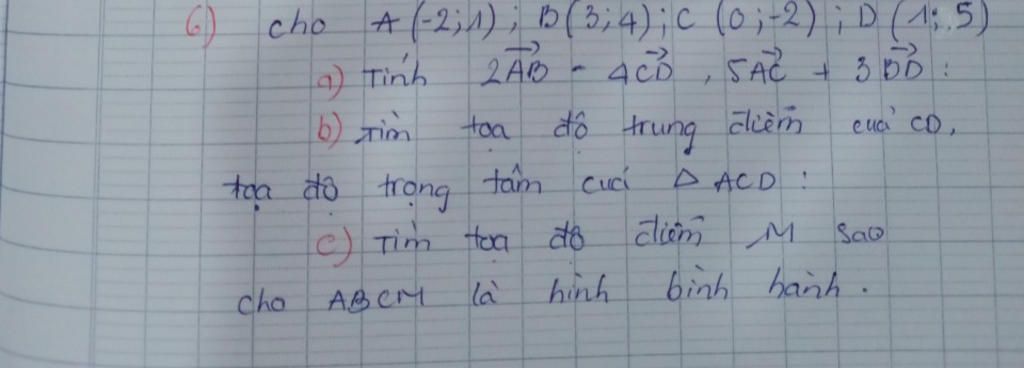 6) cho A(-2;1); B(3;4); C(0;-2); D(1;5)
a) Tính 2AB→ - 4CD→, 5AC→ + 3BD→:
b) Tìm tọa độ trung điểm của CD,
tọa độ trọng tâm của Δ ACD:
c) Tìm tọa độ điểm M sao
cho ABCM là hình bình hành.